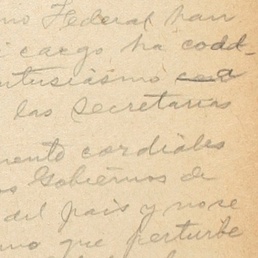 no Federal han
i cargo ha codd-
ntusiásmo
las secretarias
mento cordiales
os Gobiernos de
del país y no se
mo que perturbe